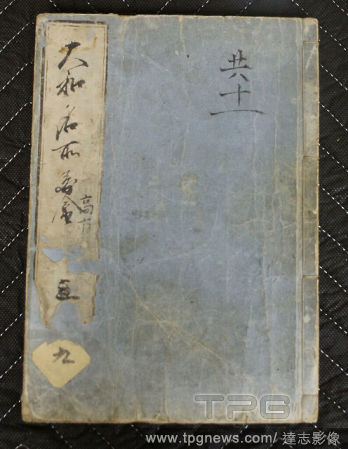 大和名所図会
高市
五
九
共十一
TPG
www.tpgnews.com/ 達志影像